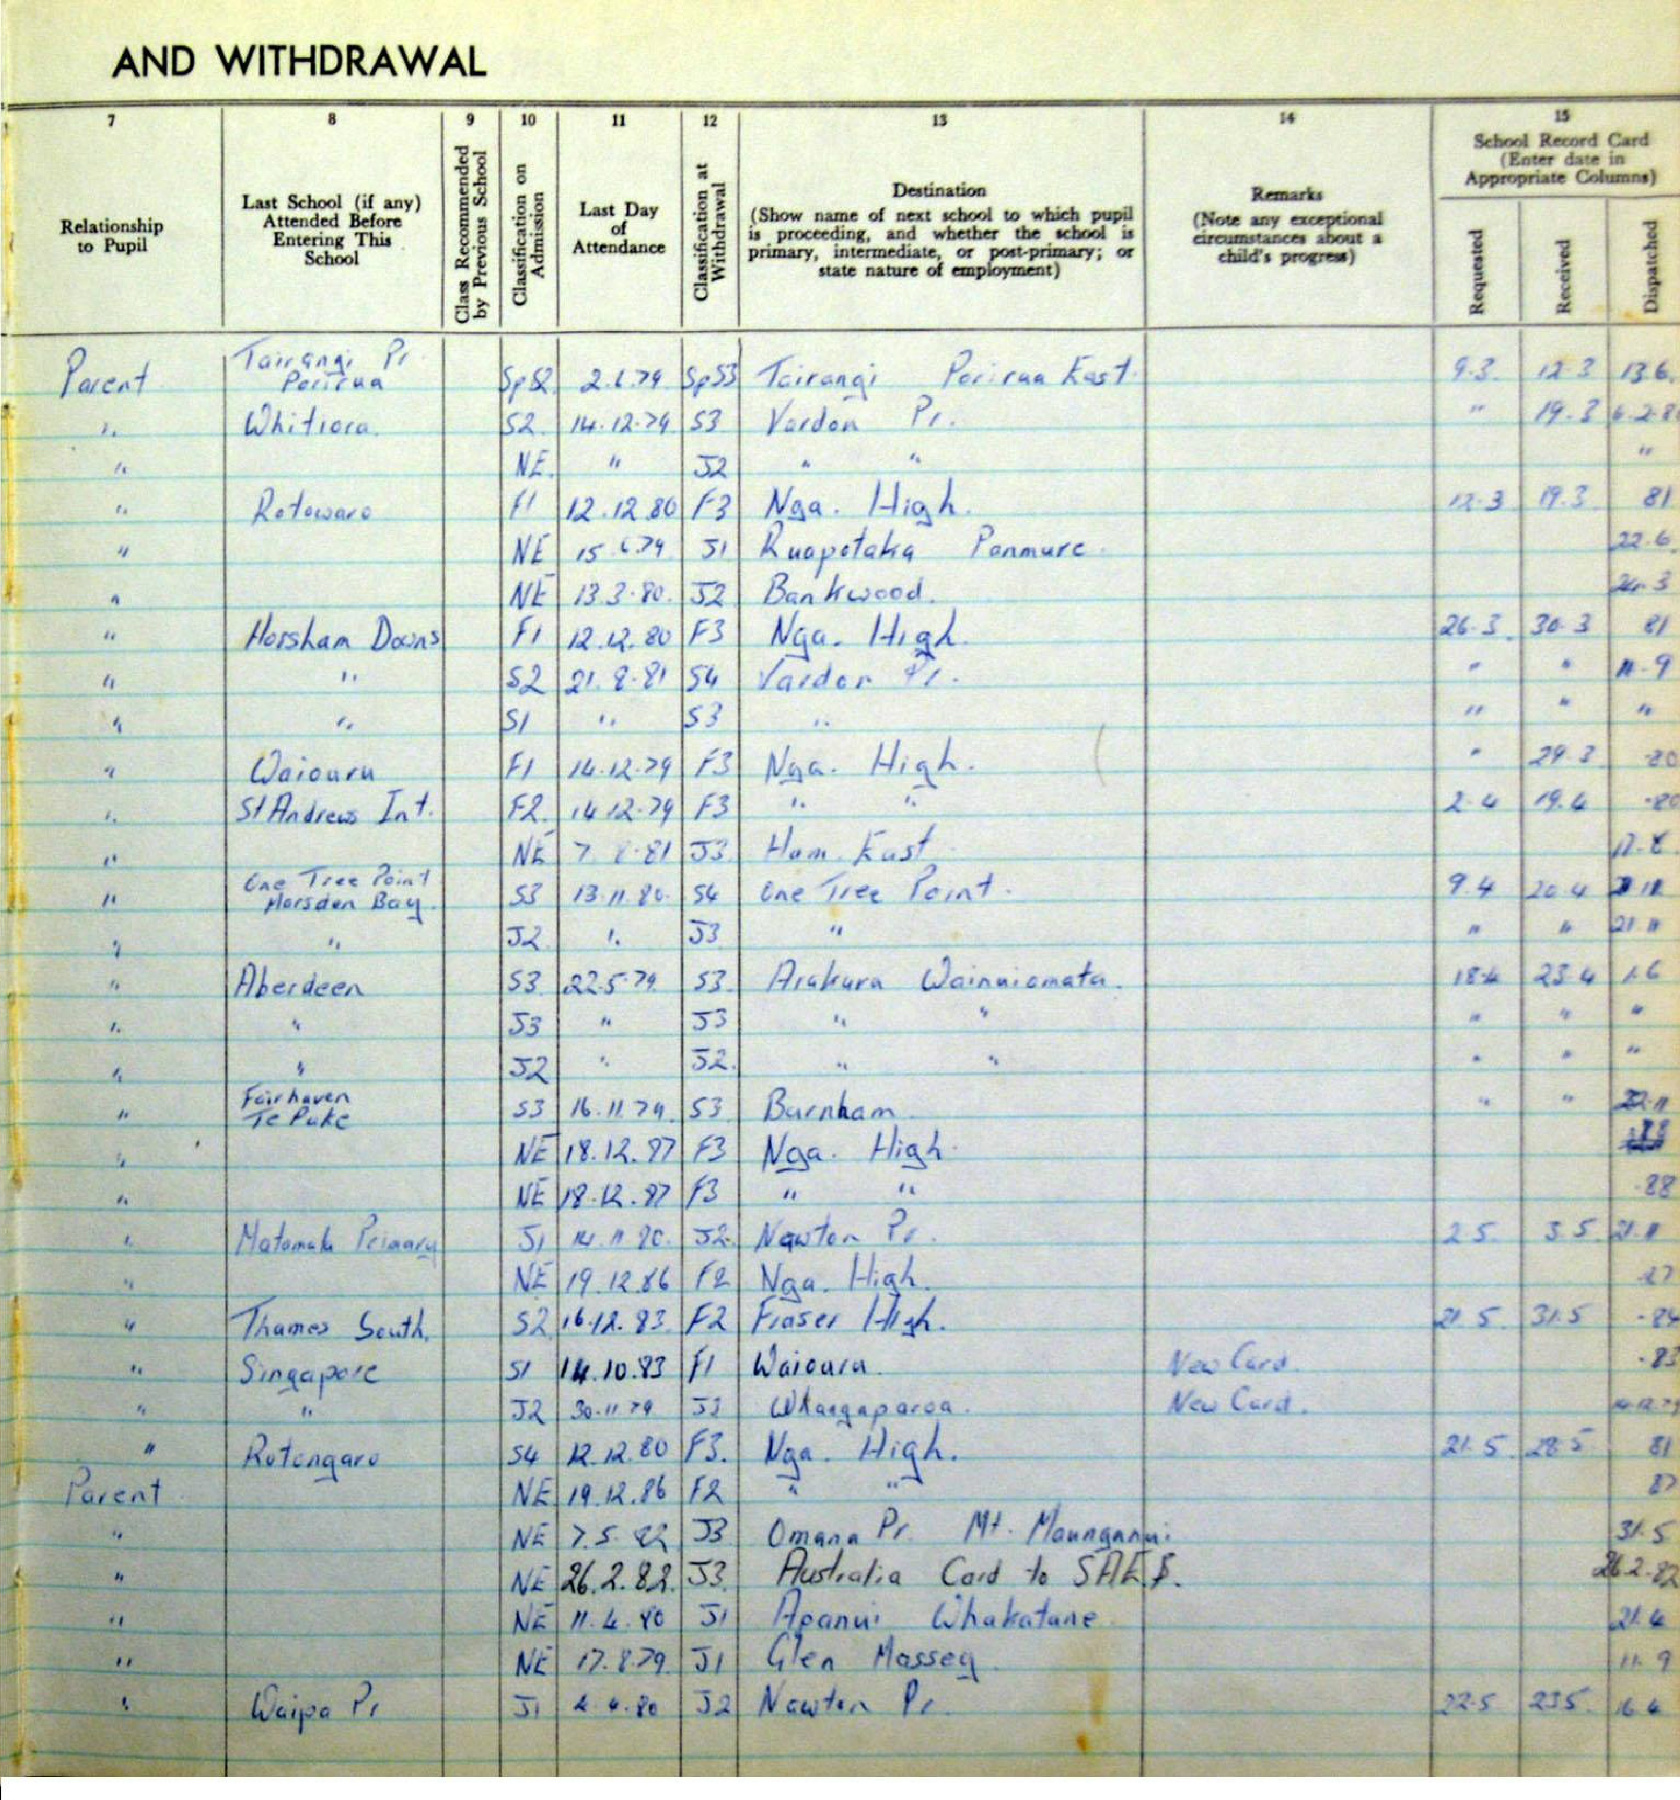 AND WITHDRAWAL
7 8 9 10 11 12 13 14 15
Relationship to Pupil
Last School (if any) Attended Before Entering This School
Class Recommended by Previous School
Classification on Admission
Last Day of Attendance
Classification at Withdrawal
Destination
(Show name of next school to which pupil is proceeding, and whether the school is primary, intermediate, or post-primary; or state nature of employment)
Remarks
(Note any exceptional circumstances about a child's progress)
School Record Card
(Enter date in Appropriate Columns)
Requested Received Dispatched
Tairangi Pr.
Parent Porirua SpS2 2.6.79 SpS3 Tairangi Porirua East 9.3. 12.3 13.6.
" Whitiora. S2. 14.12.79 S3 Vardon Pr. " 19.3
" NE. " J2 " " "
" Rotowaro F1 12.12.80 F3 Nga. High. 12.3 19.3 81
" NE 15.6.79 J1 Ruapotaka Panmure 22.6
" NE 13.3.80. J2 Bankwood.
" Horsham Downs F1 12.12.80 F3 Nga. High. 26.3. 30.3 81
" " S2 21.8.81 S4 Vardon Pr. " " 11.9
" " S1 " S3 " " " "
" Waiouru F1 14.12.79 F3 Nga. High. " 29.3 80
" St Andrews Int. F2. 14.12.79 F3 " " 2.4 19.4 -80
" NE 7.8.81 J3 Ham. East 17.8
One Tree Point
" Marsden Bay. S3 13.11.80. S4 One Tree Point. 9.4 20.4
" " J2 " J3 " " " 21.11
" Aberdeen S3. 22.5.79. S3. Arakura Wainuiomata. 18.4 23.4 1.6
" " J3 " J3 " " " " "
" " J2 " J2. " " " " "
Fairhaven
" Te Puke S3 16.11.79. S3 Burnham " " 22.11
" NE 18.12.87 F3 Nga. High. 88
" NE 18.12.87 F3 " " -88
" Matamata Primary J1 14.11.80. J2. Newton Pr. 2.5. 3.5. 21.11
" NE 19.12.86 F2 Nga. High. -87
" Thames South. S2 16.12.83. F2 Fraser High. 21.5. 31.5 -84
" Singapore S1 14.10.83 F1 Waiouru New Card. -83
" " J2 30.11.79 Whangaparoa. New Card.
" Rotongaro S4 12.12.80 F3. Nga. High. 21.5. 28.5 81
Parent NE 19.12.86 F2 " " 87
" NE 7.5.82 J3 Omanu Pr. Mt. Maunganui 31.5
" NE 26.2.82. J3. Australia Card to 26.2.82
" NE 11.4.80 J1 Apanui Whakatane 21.4
" NE 17.8.79. J1 Glen Massey 11.9
" Waipa Pr J1 2.4.80 J2 Newton Pr. 22.5. 23.5. 16.4